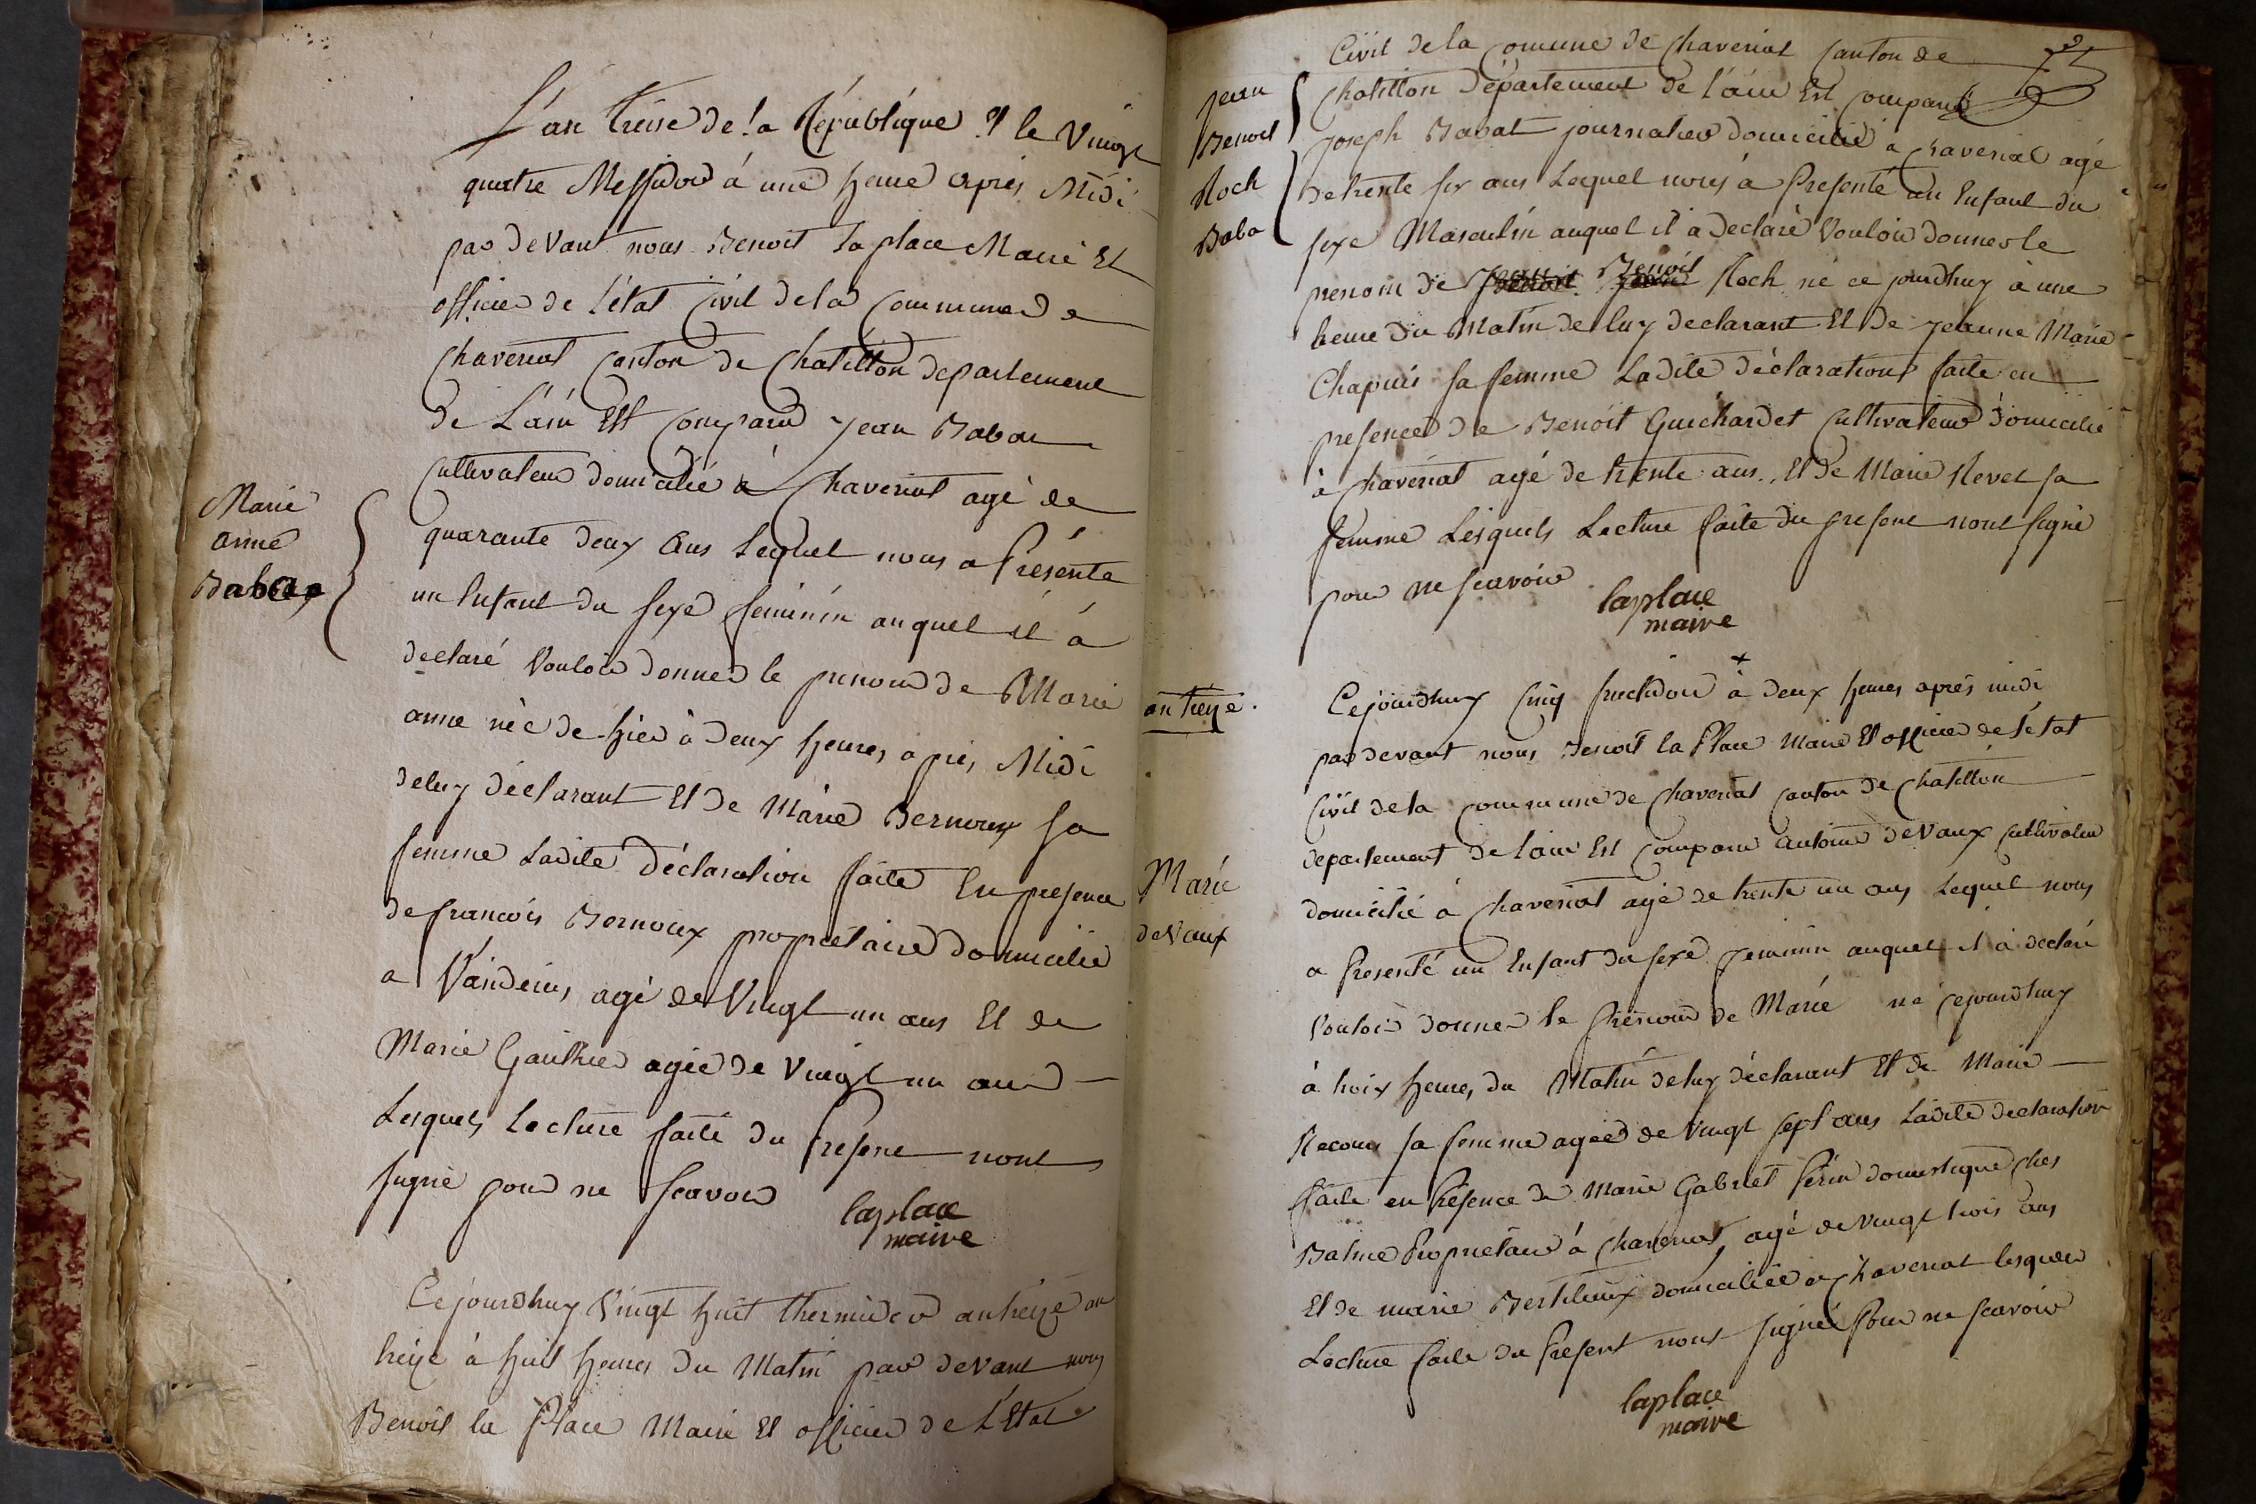 L'an treise de la République et le Vingt
quatre Messidor à une heure apres Midi
par devant nous Benoit la place Maire Et
officier de l'état Civil de la Commune de
Chaveriat Canton de Chatillon departement
de L'ain Est Comparu Jean Baban
Cultivateur domicilié à Chaveriat agé de
quarante deux Ans Lequel nous a Présenté
Marie
anne
un Enfant du sexe feminin auquel il à
declaré Vouloir donner le prenom de Marie
anne née de hier à deux heures apres Midi
de luy déclarant Et de Marie Bernoux sa
femme Ladite déclaration faite En presence
de francois Bernoux proprietaire domicilié
a Vandeins agé de Vingt un ans Et de
Marie Gauthier agée de Vingt un ans
Lesquels Lecture faite du Present nont
signé pour ne scavoir
laplace
maire
Cejourdhuy Vingt huit thermidor an treize an
treize à huit heures du Matin par devant nous
Benoit la Place Maire Et officier de L'Etat
Civil de la Comune de Chaveriat Canton de
Chatillon Département de l'ain Est Comparu
Jean
Benoit
Roch
Baba
Joseph Babat journalier domicilié à Chaveriat agé
de trente six ans Lequel nous à Presenté un Enfant du
sexe Masculin auquel il à declaré Vouloir donner le
prenom de Benoit Roch né ce jourdhuy à une
heure du Matin de luy declarant Et de Jeanne Marie
Chapuis sa femme Ladite déclaration faite en
presence de Benoit Guichardet Cultivateur domicilié
à Chaveriat agé de trente ans, Et de Marie Revel sa
femme Lesquels Lecture faite du present nont signé
pour ne scavoir
laplace
maire
an treize.
Cejourdhuy Cinq fructidor à deux heures aprés midi
par devant nous Benoit la Place Maire Et officier de l'état
Civil de la Commune de Chaveriat Canton de Chatillon
departement de lain Est Comparu antoine deVaux Cultivateur
Marie
deVaux
domicilié à Chaveriat agé de trente un ans Lequel nous
a Presenté un Enfant du sexe feminin auquel il à declaré
Vouloir donner le Prénom de Marie né cejourdhuy
à troix heures du Matin de luy déclarant Et de Marie
sa femme agée de Vingt sept ans Ladite declaration
faite en Présence de Marie Gabriel Périn domestique ches
Balme Proprietaire à Chaveriat agé de vingt trois ans
Et de marie domiciliée à Chaveriat lesquels
Lecture faite du Present nont signé Pour ne scavoir
laplace
maire